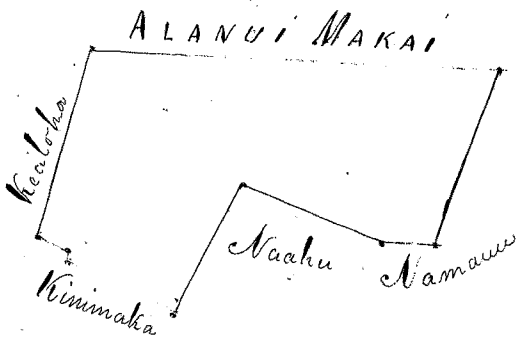 ALANUI MAKAI
Kealoha
Kinimaka
Naahu
Namauu